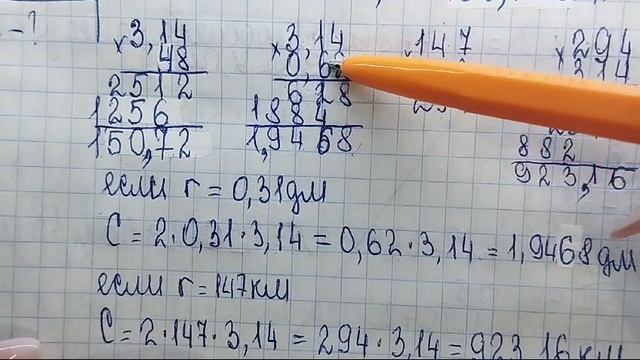 -?
× 3,14
48
2512
1256
150,72
× 3,14
0,62
628
1884
1,9468
147
× 294
314
882
923,16
если r = 0,31дм
C = 2·0,31·3,14 = 0,62·3,14 = 1,9468 дм
если r = 147км
C = 2·147·3,14 = 294·3,14 = 923,16 км